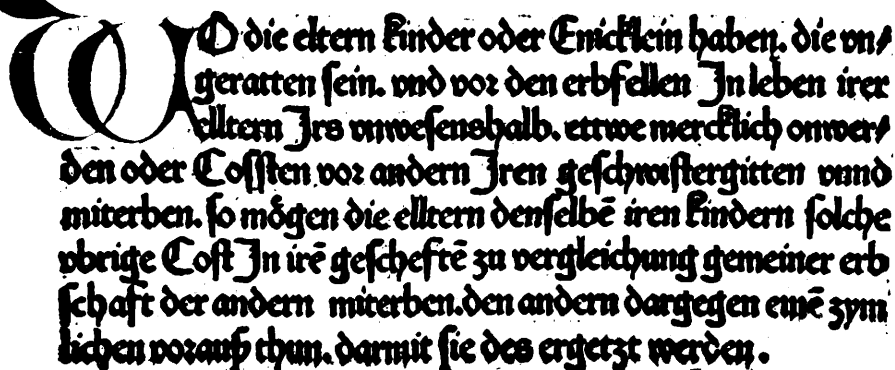 WO die eltern kinder oder Enicklein haben. die vn/
geratten sein. vnd vor den erbfellen In leben irer
elltern Irs vnwesenshalb. ettwe mercklich onwer/
den oder Cossten vor andern Iren geschwistergitten vnnd
miterben. so mögen die elltern denselbē iren kindern solche
vbrige Cost In irē gescheftē zu vergleichung gemeiner erb
schaft der andern miterben. den andern dargegen einē zym
lichen vorauß thun. darmit sie des ergetzt werden.